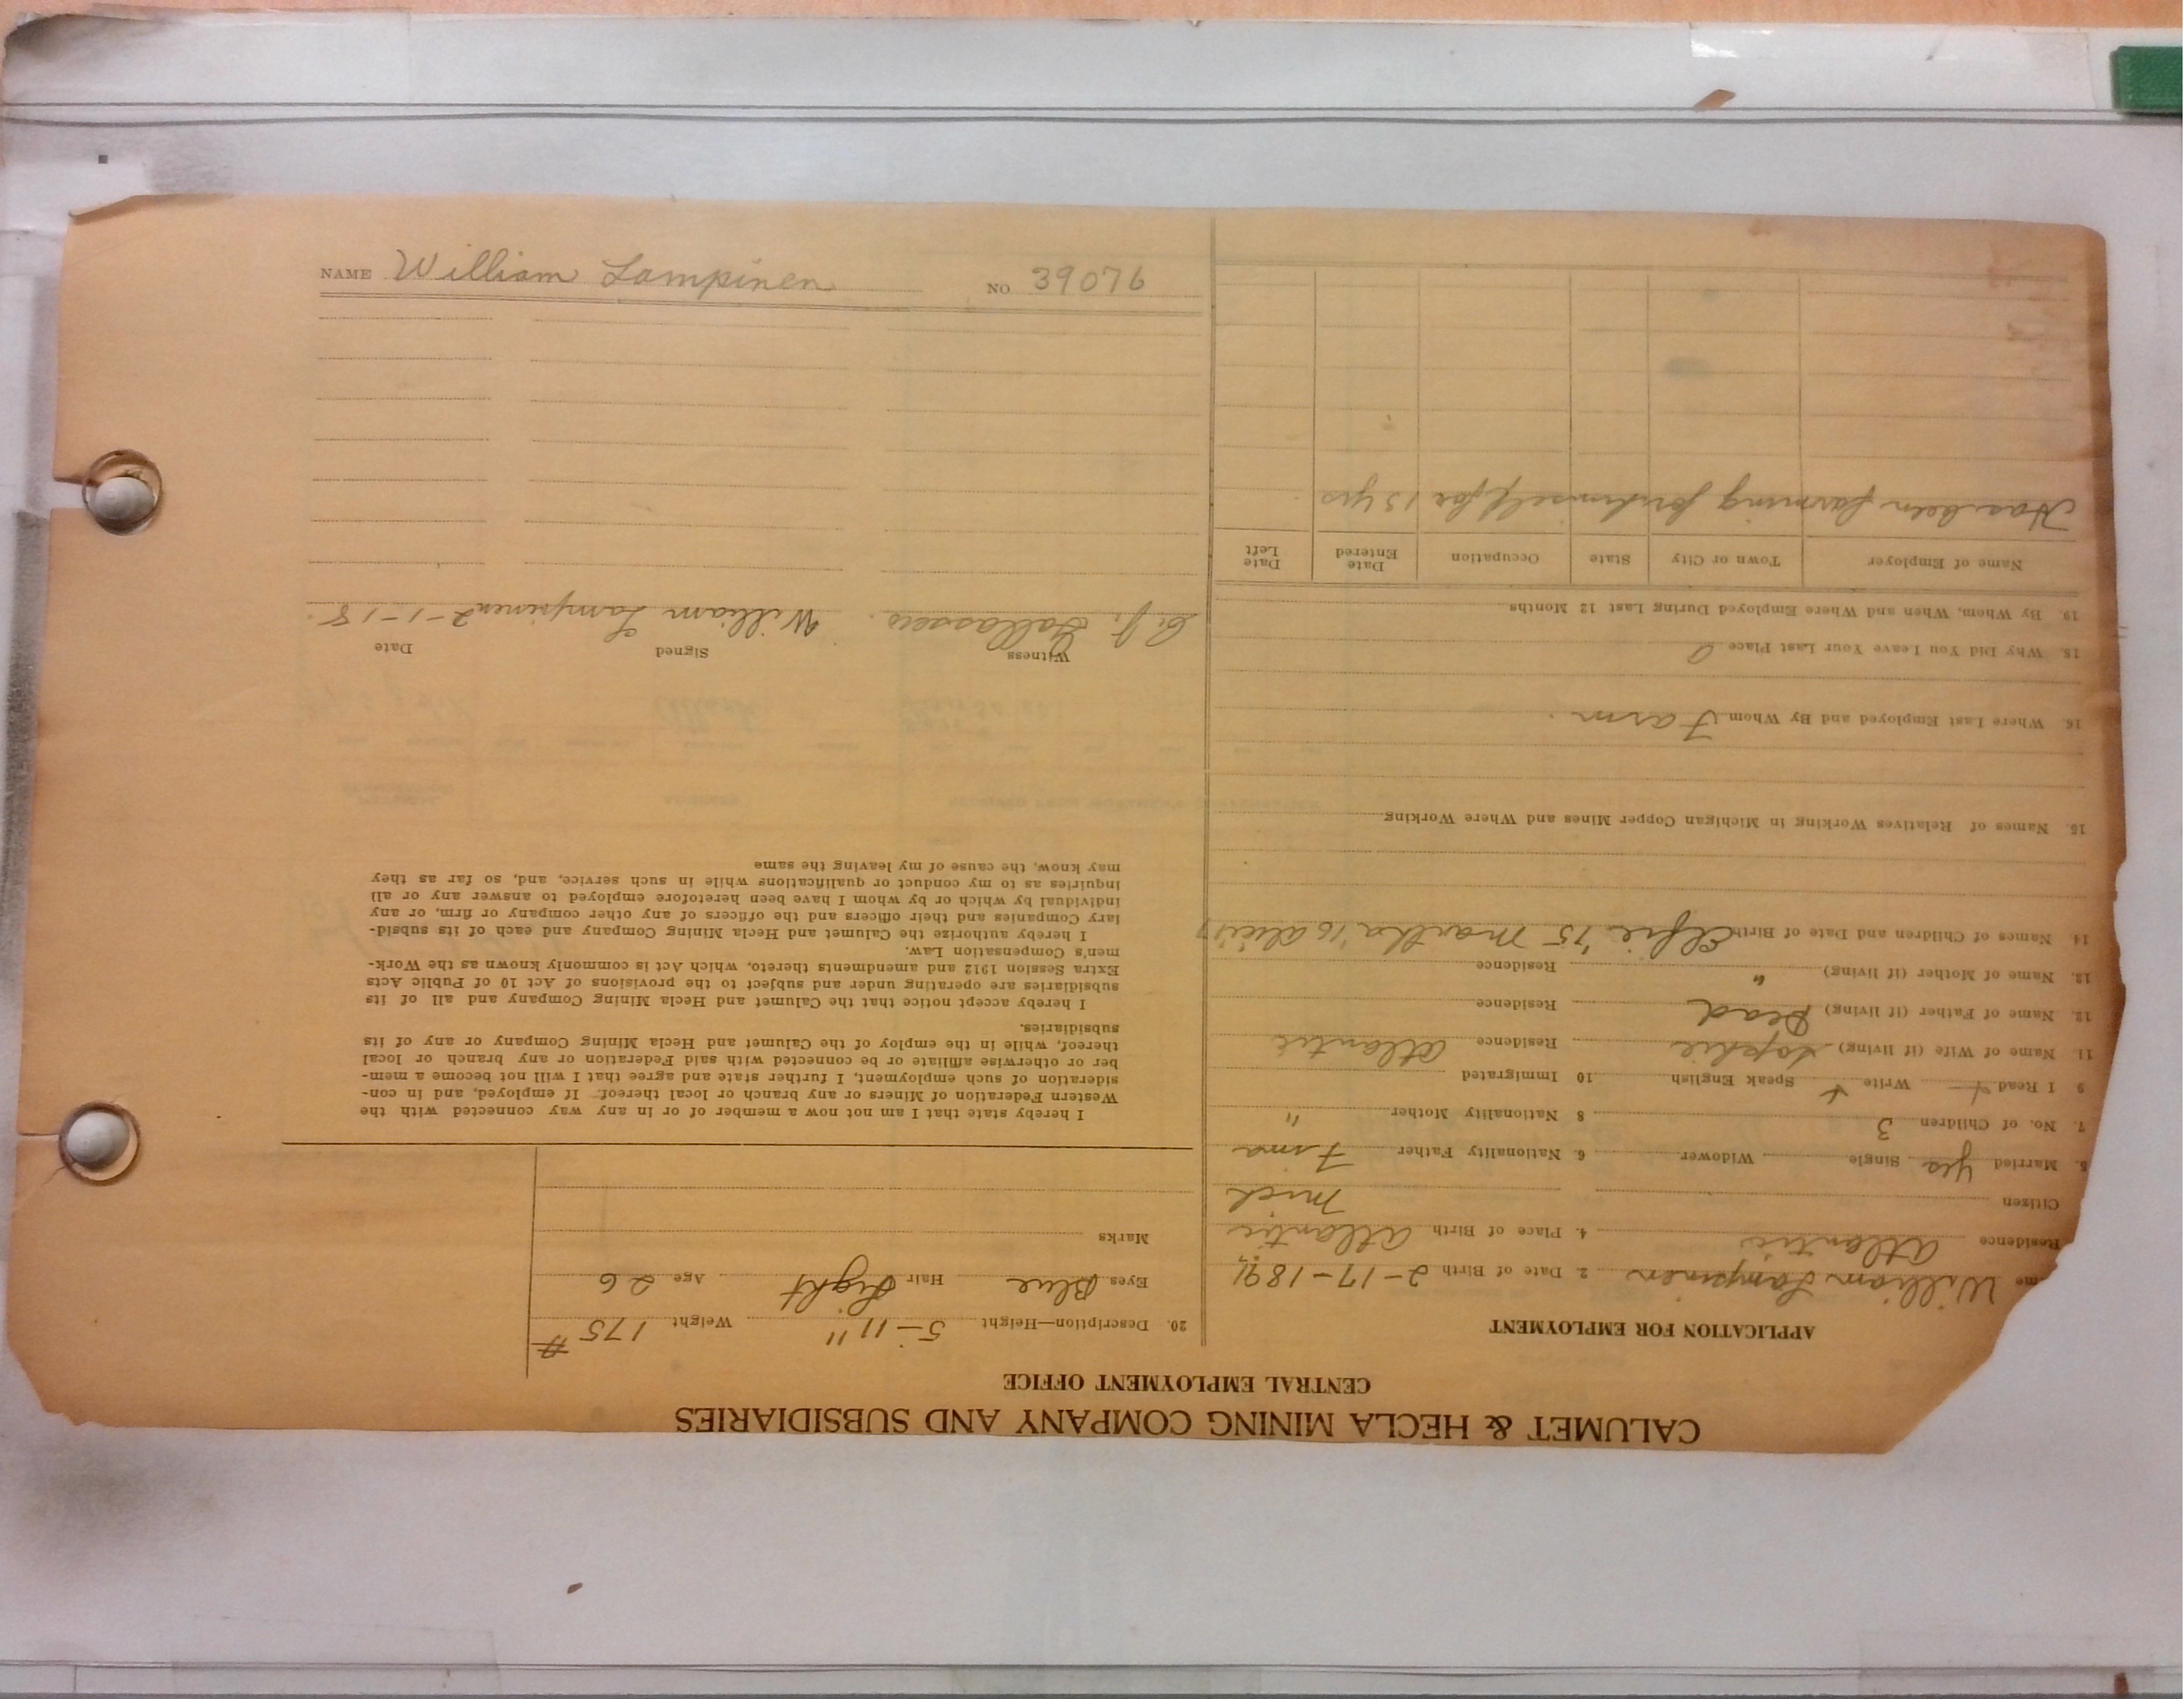 CALUMET & HECLA MINING COMPANY AND SUBSIDIARIES
CENTRAL EMPLOYMENT OFFICE
APPLICATION FOR EMPLOYMENT
me William Lampinen 2. Date of Birth 2-17-1891
Residence Atlantic 4. Place of Birth Atlantic
Citizen Mich
5. Married Yes Single Widower 6. Nationality Father
7. No. of Children 3 8 Nationality Mother "
9 I Read + Write + Speak English 10 Immigrated
11. Name of Wife (if living) Sophie Residence Atlantic
12. Name of Father (if living) Dead Residence
13. Name of Mother (if living) " Residence
14. Names of Children and Date of Birth '15 Martha '16 Alice '17
15. Names of Relatives Working in Michigan Copper Mines and Where Working
16. Where Last Employed and By Whom Farm
18. Why Did You Leave Your Last Place
19. By Whom, When and Where Employed During Last 12 Months
Name of Employer Town or City State Occupation Date Entered Date Left
Has been farming for himself for 13 yrs
20. Description—Height 5-11" Weight 175 #
Eyes Blue Hair Light Age 26
Marks
I hereby state that I am not now a member of or in any way connected with the
Western Federation of Miners or any branch or local thereof. If employed, and in con-
sideration of such employment, I further state and agree that I will not become a mem-
ber or otherwise affiliate or be connected with said Federation or any branch or local
thereof, while in the employ of the Calumet and Hecla Mining Company or any of its
subsidiaries.
I hereby accept notice that the Calumet and Hecla Mining Company and all of its
subsidiaries are operating under and subject to the provisions of Act 10 of Public Acts
Extra Session 1912 and amendments thereto, which Act is commonly known as the Work-
men's Compensation Law.
I hereby authorize the Calumet and Hecla Mining Company and each of its subsid-
iary Companies and their officers and the officers of any other company or firm, or any
individual by which or by whom I have been heretofore employed to answer any or all
inquiries as to my conduct or qualifications while in such service, and, so far as they
may know, the cause of my leaving the same
Witness Signed Date
William Lampinen 2-1-18.
NAME William Lampinen NO 39076